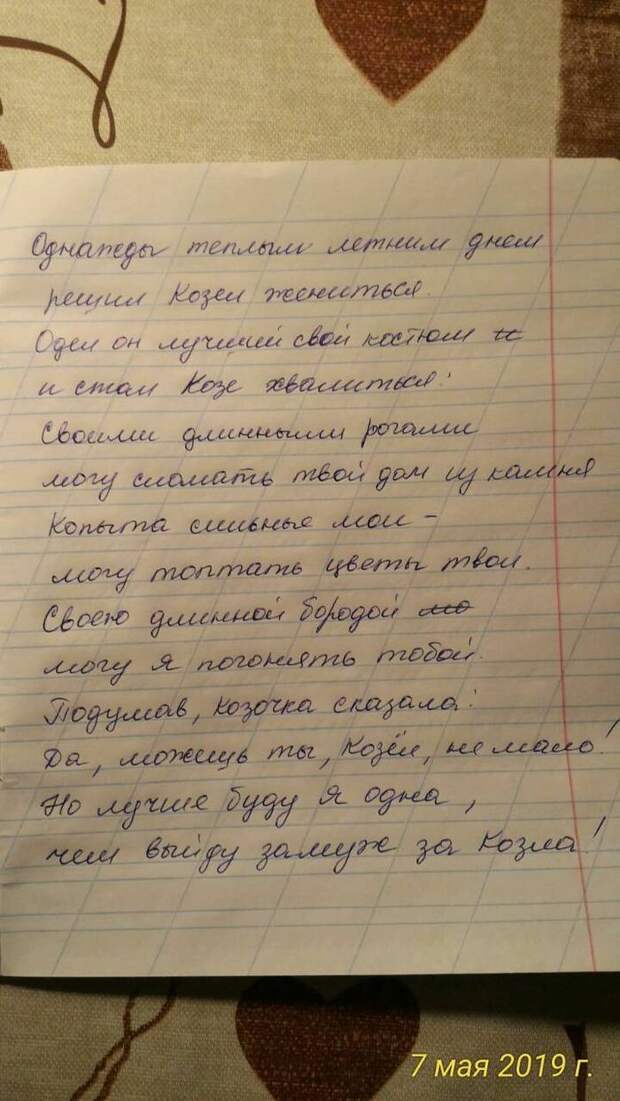 Однажды теплым летним днем
решил Козел жениться.
Одел он лучший свой костюм и
и стал Козе хвалиться:
Своими длинными рогами
могу сломать твой дом из камня
Копыта сильные мои –
могу топтать цветы твои.
Своею длинной бородой мо
могу я погонять тобой.
Подумав, Козочка сказала:
Да, можешь ты, Козёл, не мало!
Но лучше буду я одна,
чем выйду замуж за Козла!
7 мая 2019 г.